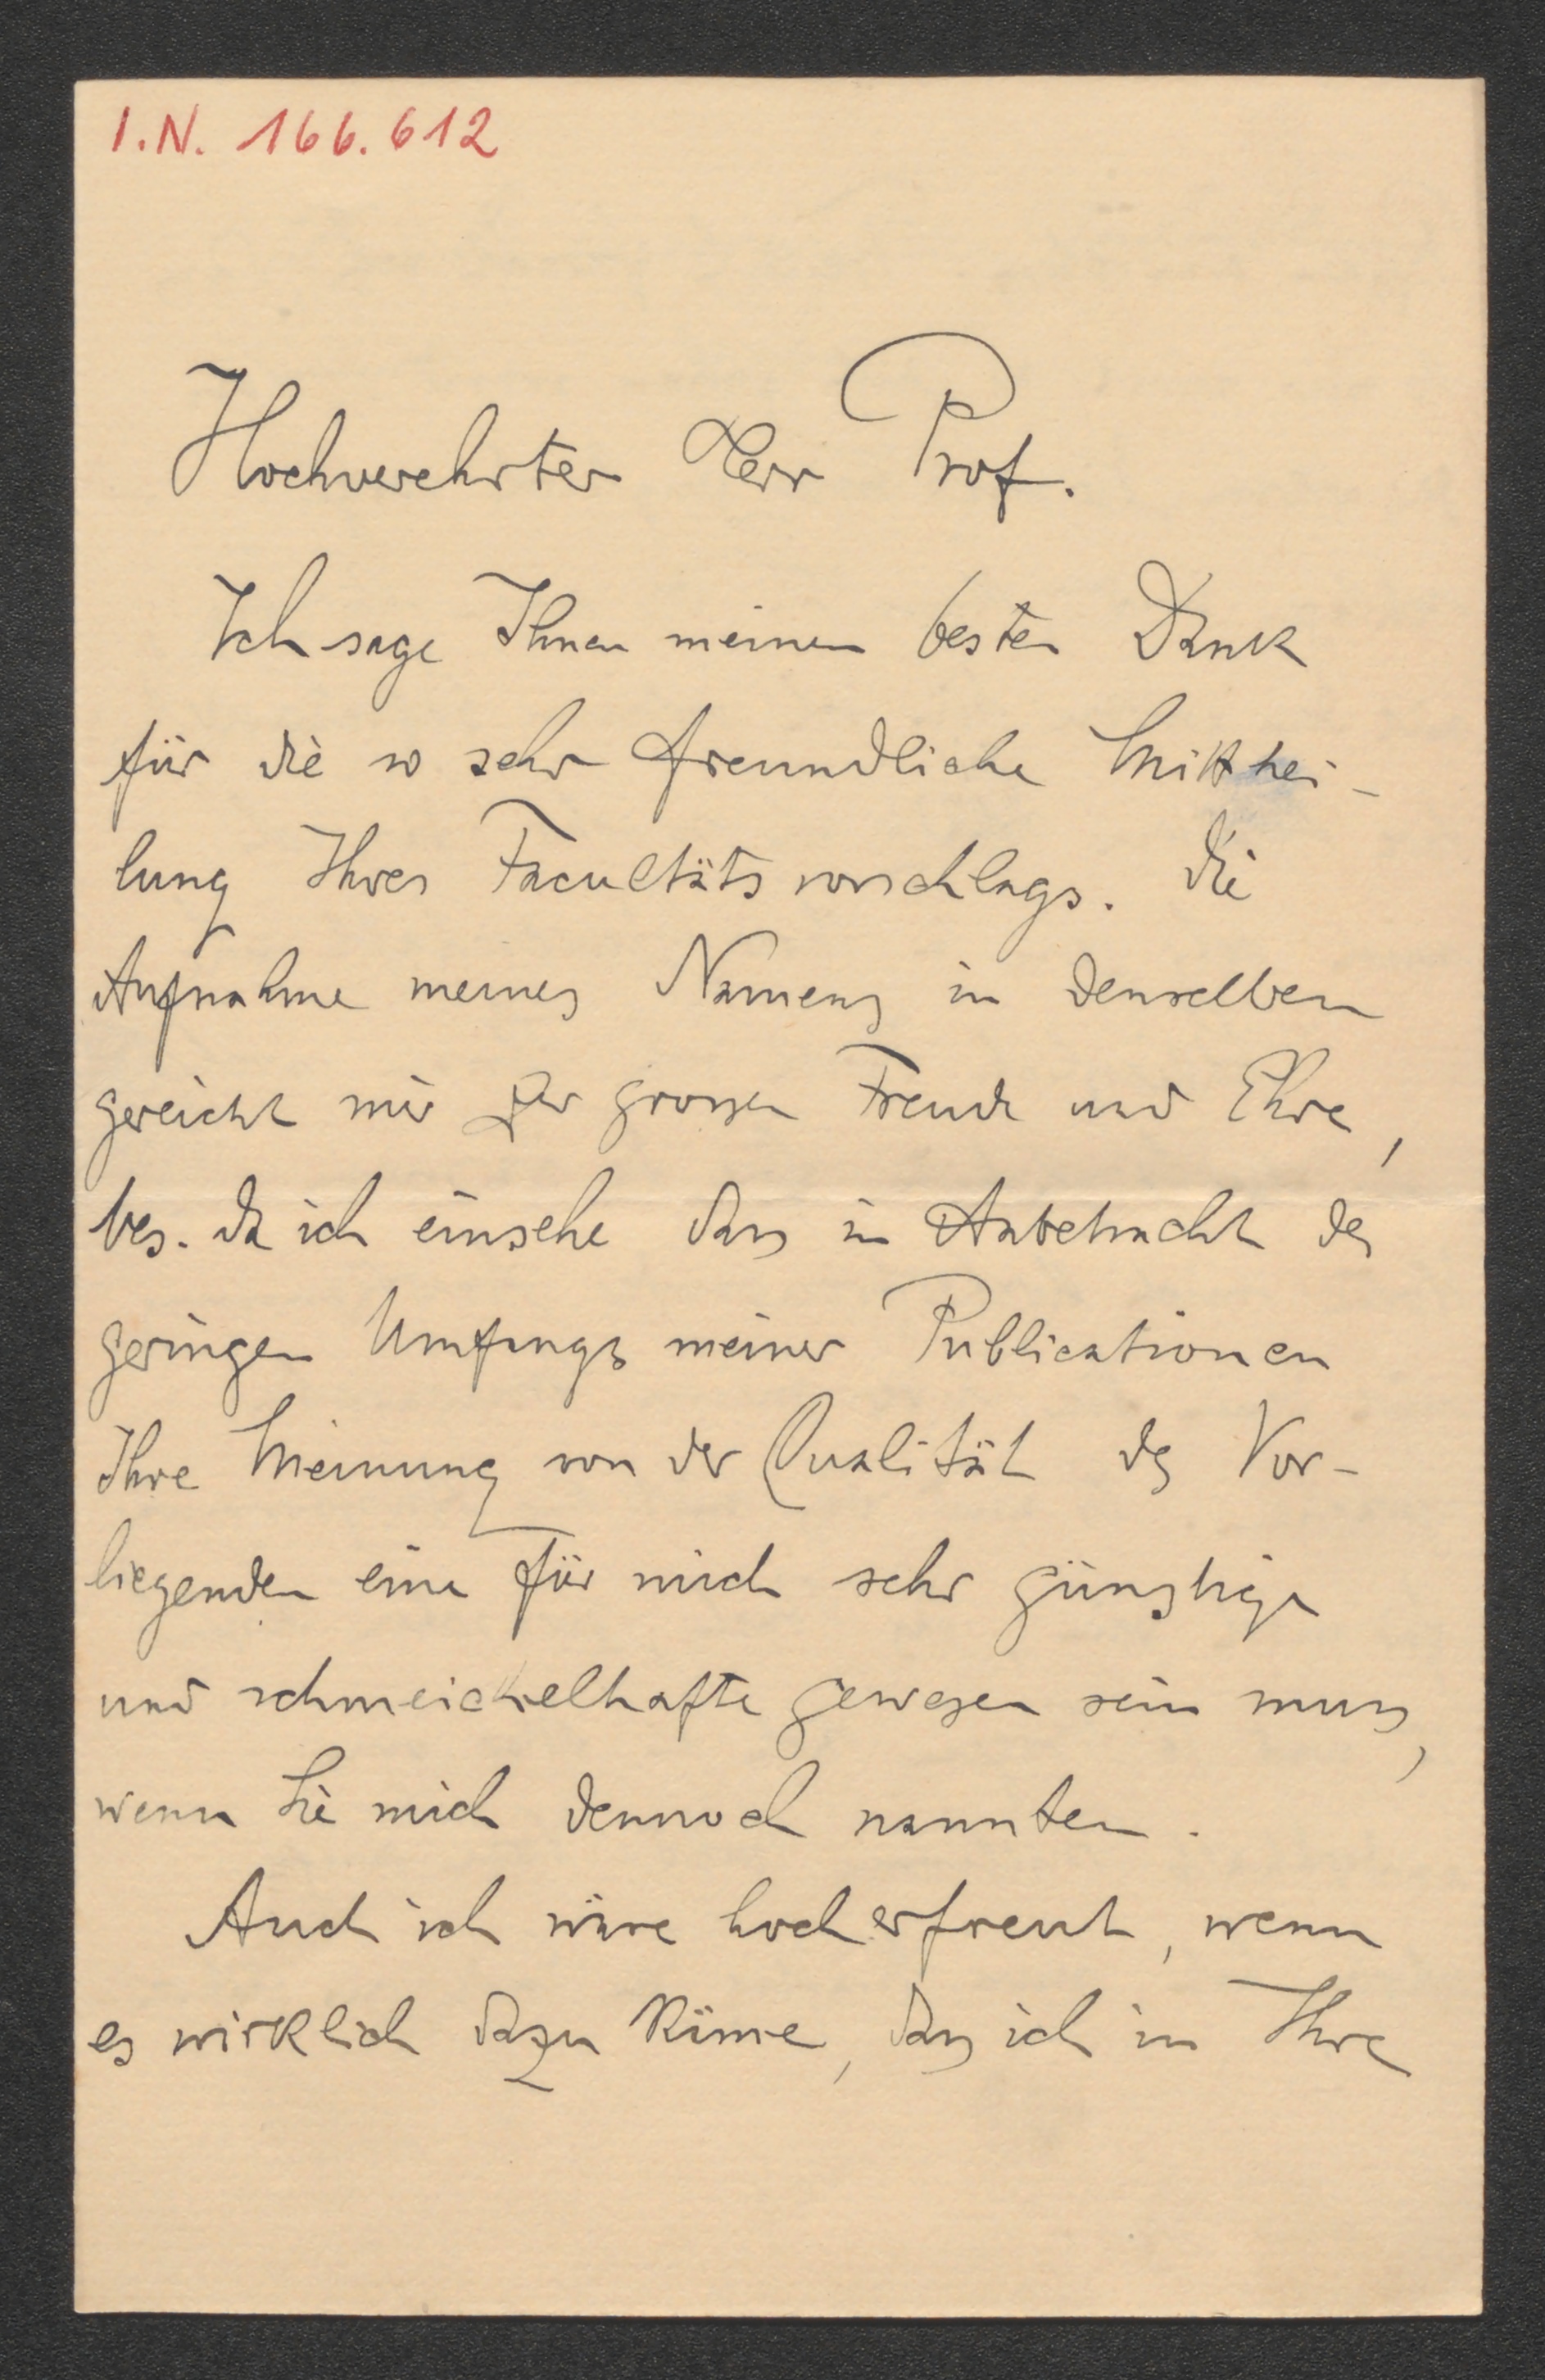 I.N. 166.612
Hochverehrter Herr Prof.
Ich sage Ihnen meinen besten Dank
für die so sehr freundliche Mitthei-
lung Ihres Facultätsvorschlags. Die
Aufnahme meines Namens in denselben
gereicht mir zur grossen Freude und Ehre,
bes. da ich einsehe dass in Anbetracht des
geringen Umfangs meiner Publicationen
Ihre Meinung von der Qualität des Vor-
liegenden eine für mich sehr günstige
und schmeichelhafte gewesen sein muss,
wenn Sie mich dennoch nannten.
Auch ich wäre hocherfreut, wenn
es wirklich dazu käme, dass ich in Ihre